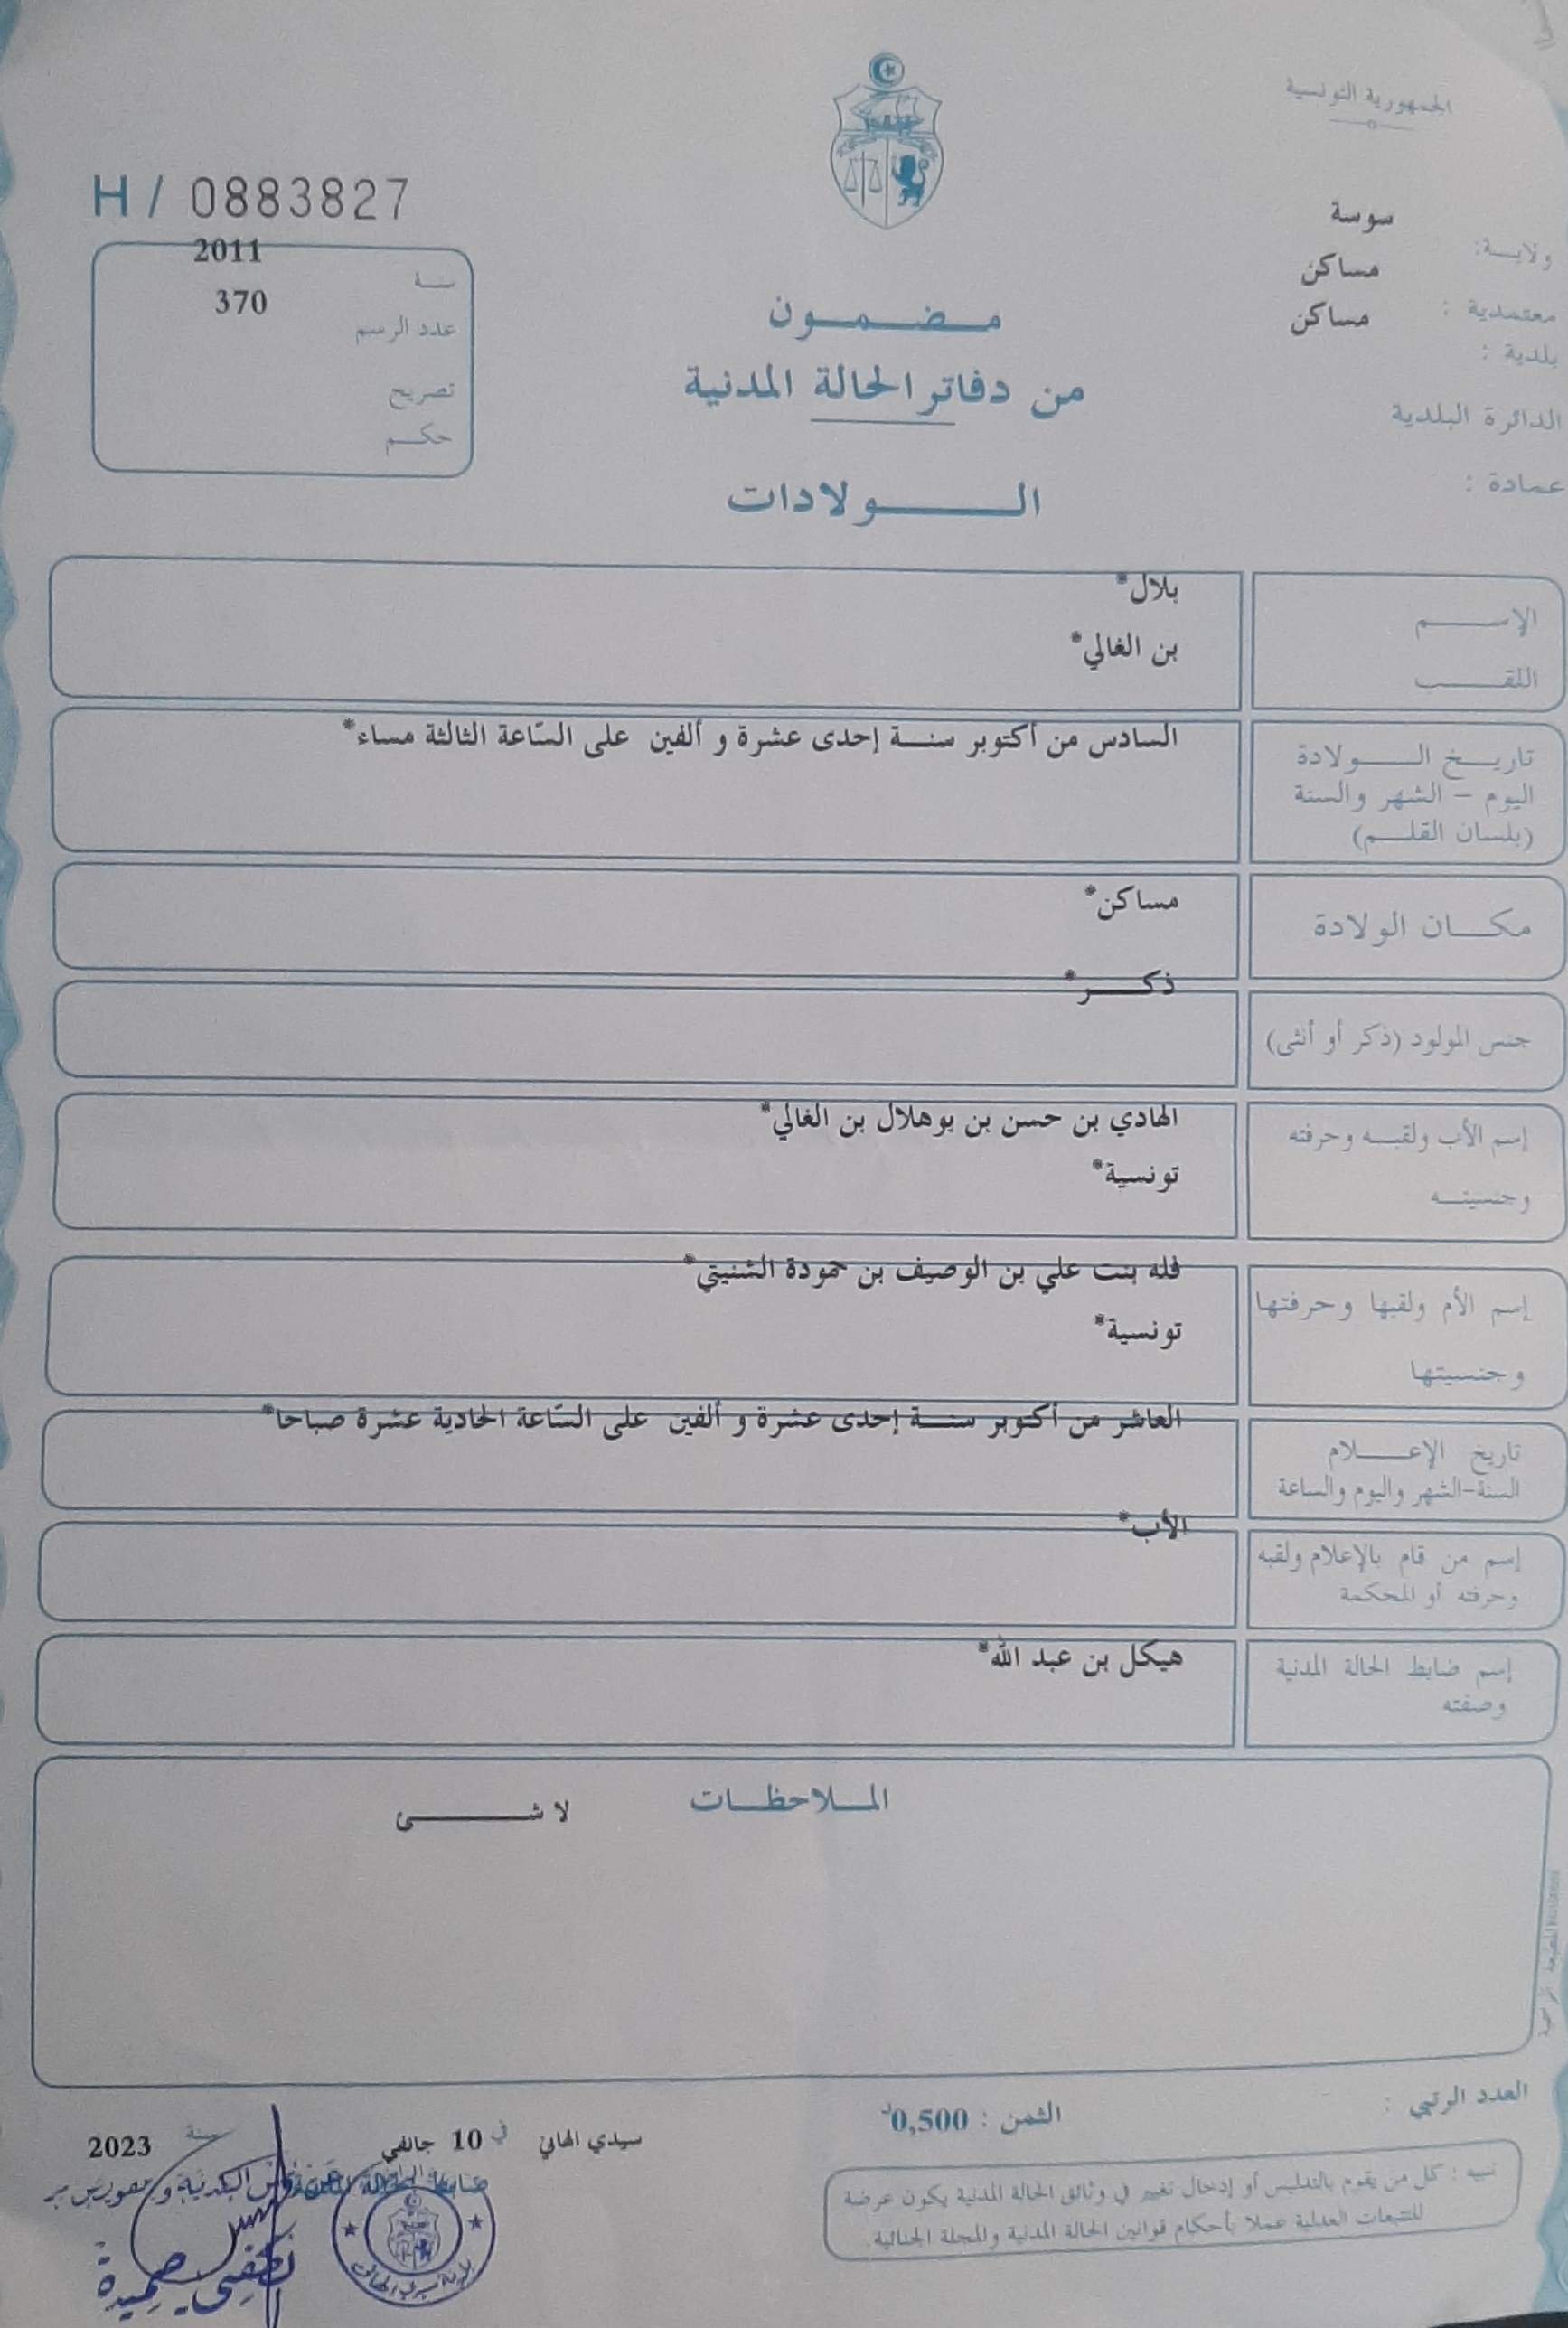 الجمهورية التونسية
H / 0883827
ولايـــة: سوسة
معتمدية : مساكن
بلدية : مساكن
الدائرة البلدية
عمادة :
سنـــة 2011
عدد الرسم 370
تصريح
حكـــم
مـــضـــمـــون
من دفاتر الحالة المدنية
الـــــولادات
الإســـــم بلال*
اللقـــــب بن الغالي*
تاريـــخ الـــــولادة السادس من أكتوبر سنـــة إحدى عشرة و ألفين على السّاعة الثالثة مساء*
اليوم – الشهر والسنة
(بلسان القلـــم)
مكـــان الولادة مساكن*
جنس المولود (ذكر أو أنثى) ذكـــر*
إسم الأب ولقبـــه وحرفته الهادي بن حسن بن بوهلال بن الغالي*
وجنسيتـــه تونسية*
إسم الأم ولقبها وحرفتها فله بنت علي بن الوصيف بن حمودة الشنيتي*
وجنسيتها تونسية*
تاريخ الإعـــــلام العاشر من أكتوبر سنـــة إحدى عشرة و ألفين على السّاعة الحادية عشرة صباحا*
السنة-الشهر واليوم والساعة
إسم من قام بالإعلام ولقبه الأب*
وحرفته أو المحكمة
إسم ضابط الحالة المدنية هيكل بن عبد الله*
وصفته
المـــلاحظـــات لا شـــــئ
العدد الرتبي :
الثمن : 0,500د
سيدي الهاني في 10 جانفي سنة 2023
ضابط الحالة المدنية
تنبيه : كل من يقوم بالتدليس أو إدخال تغيير في وثائق الحالة المدنية يكون عرضة
للتتبعات العدلية عملا بأحكام قوانين الحالة المدنية والمجلة الجنائية.
بلدية سيدي الهاني